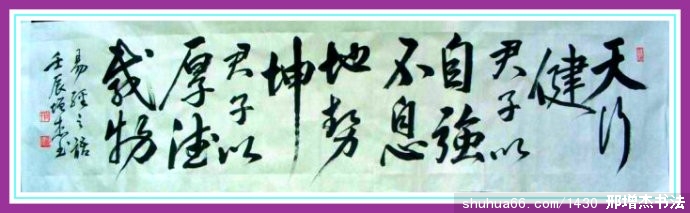 天行
健
君子以
自強
不息
地勢
坤
君子以
厚德
載物
易經之語
壬辰增杰书
shuhua66.com/1430 邢增杰书法